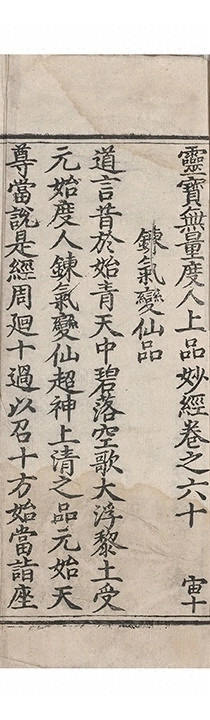 靈寶無量度人上品妙經卷之六十 宙十
鍊氣變仙品
道言昔於始青天中碧落空歌大浮黎土受
元始度人鍊氣變仙超神上清之品元始天
尊當說是經周廻十過以召十方始當詣座